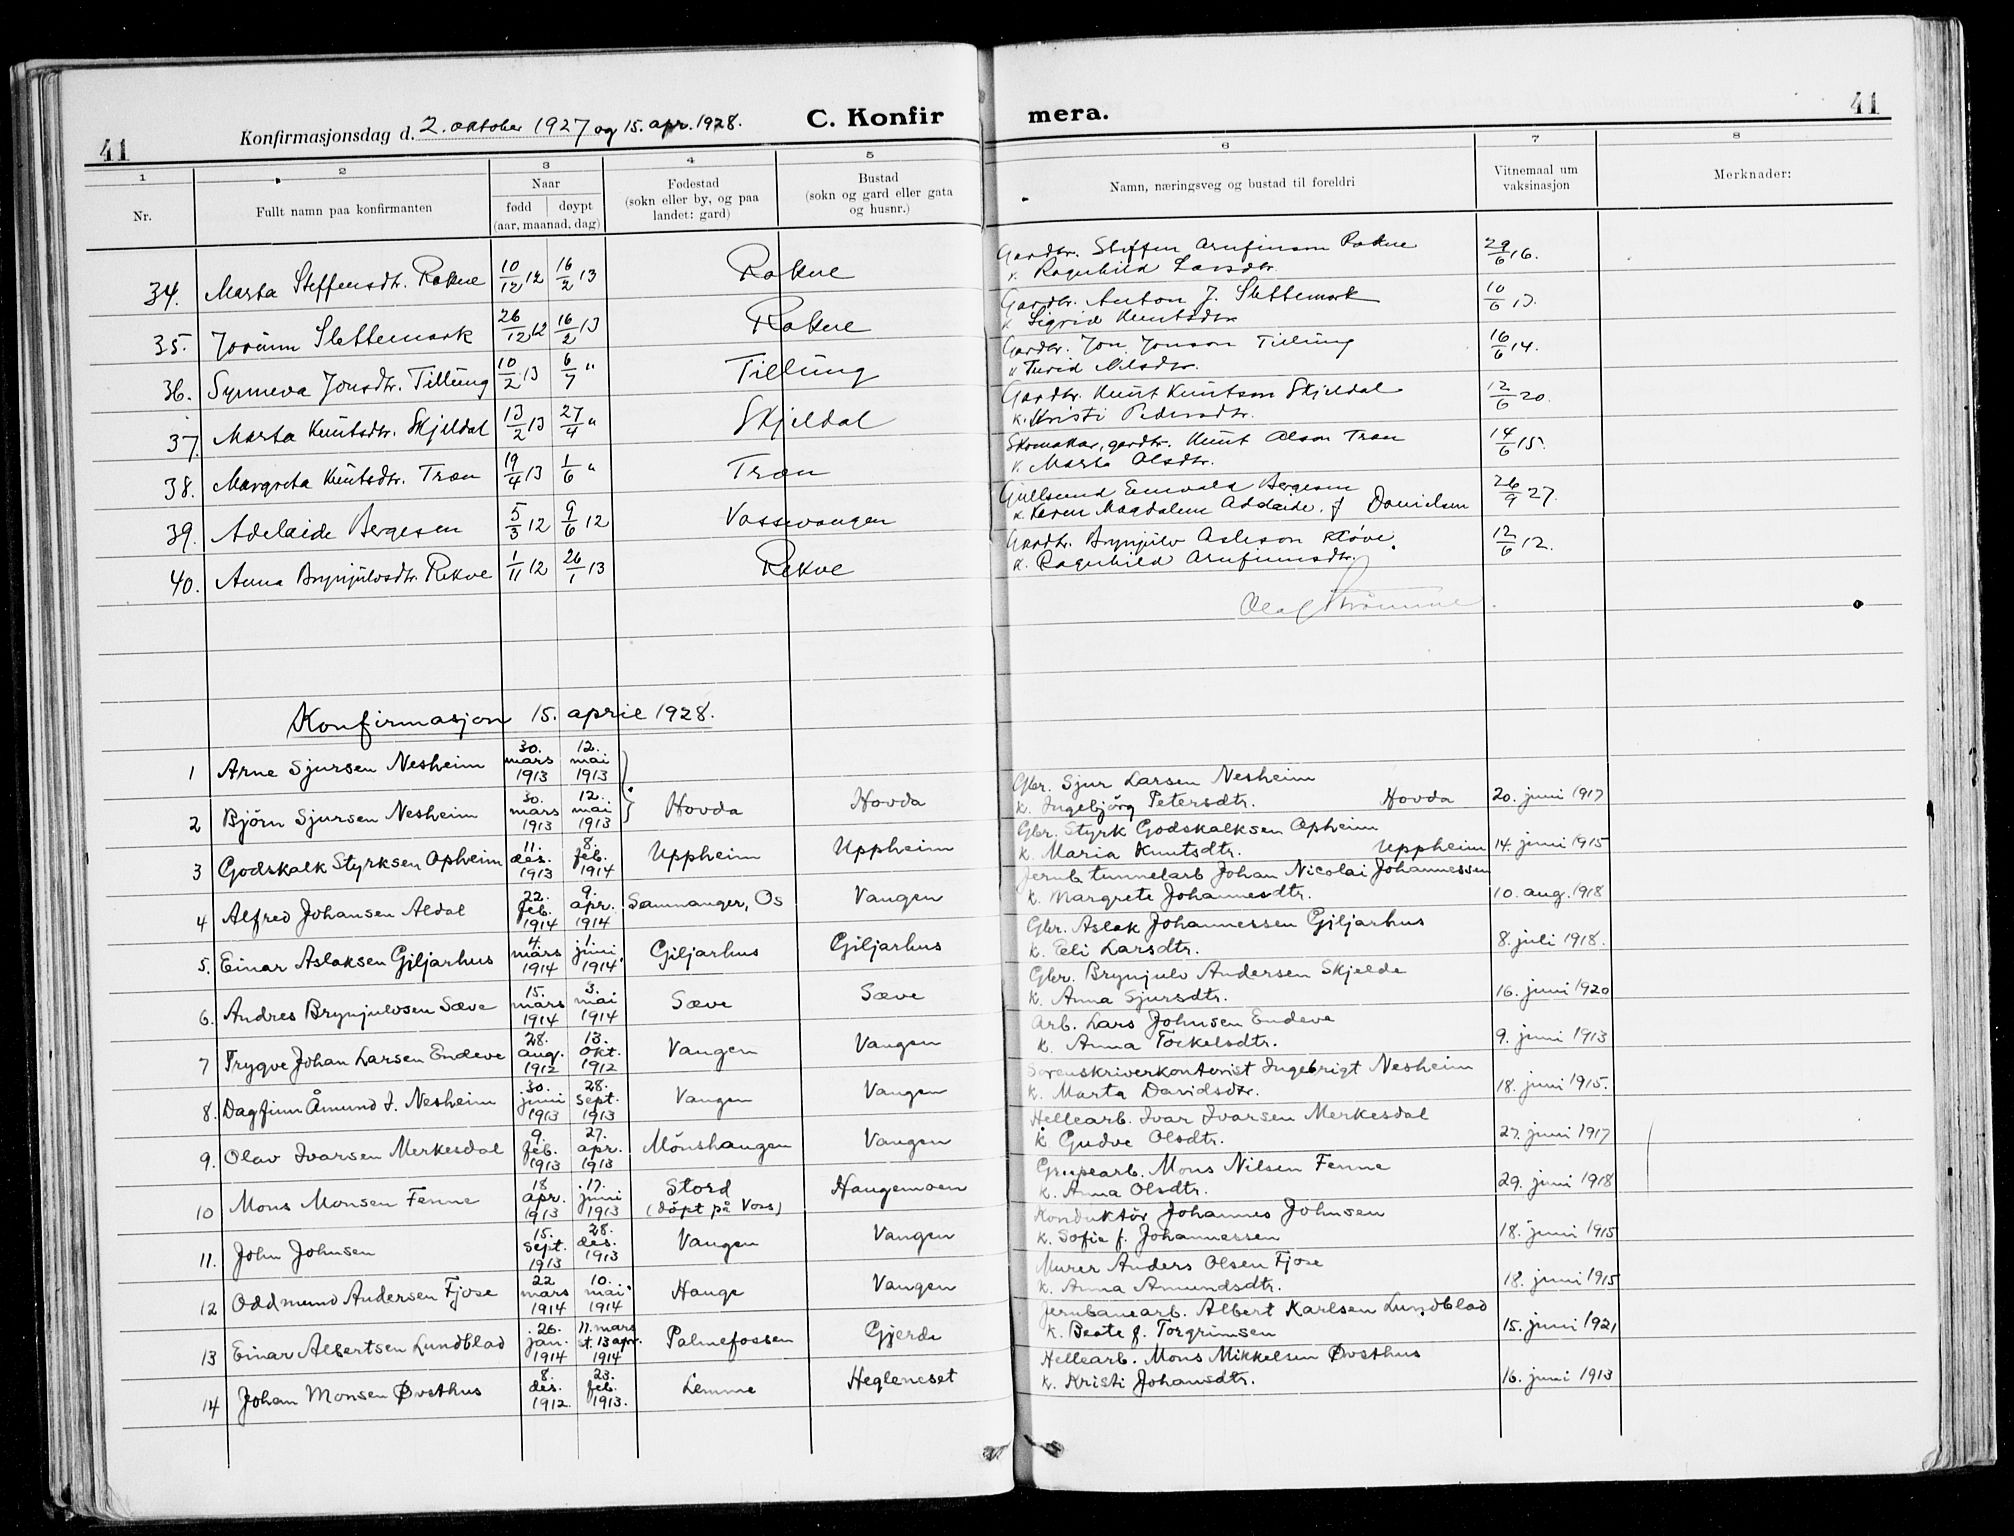 41 Konfirmasjonsdag d. 2. oktober 1927 og 15. apr. 1928. C. Konfir mera. 41
1 2 3 4 5 6 7 8
Nr. Fullt namn paa konfirmanten Naar Fødestad Bustad Namn, næringsveg og bustad til foreldri Vitnemaal um Merknader:
fødd døypt (sokn eller by, og paa (sokn og gard eller gata vaksinasjon
(aar, maanad, dag) landet: gard) og husnr.)
34. Marta Steffensdtr. Rokne 10/12 12 16/2 13 Rokne Gardbr. Steffen Arnfinson Rokne 29/6 16.
k. Ragnhild Larsdtr.
35. Jorunn Slettemark 26/12 12 16/2 13 Rokne Gardbr. Anton J. Slettemark 10/6 13.
k. Sigrid Knutsdtr.
36. Synneva Jonsdtr. Tillung 10/2 13 6/7 " Tillung Gardbr. Jon Jonson Tillung 16/6 14.
k. Turid Nilsdtr.
37. Marta Knutsdtr. Skjeldal 13/2 13 27/4 " Skjeldal Gardbr. Knut Knutson Skjeldal 12/6 20.
k. Kristi Pedersdtr.
38. Margreta Knutsdtr. Træn 19/4 13 1/6 " Træn Skomakar, gardbr. Knut Olson Træn 14/6 15.
k. Marta Olsdtr.
39. Adelaide Bergesen 5/3 12 9/6 12 Vossevangen Gullsmed Enwald Bergesen 26/9 27.
k. Karen Magdalene Adelaide f. Danielsen
40. Anna Brynjulvsdtr. Rekve 1/11 12 26/1 13 Rekve Gardbr. Brynjulv Asleson Støve. 12/6 12.
k. Ragnhild Arnfinnsdtr.
Olaf Trømme.
Konfirmasjon 15. april 1928.
1 Arne Sjursen Nesheim 30. mars 1913 12. mai 1913
2 Björn Sjursen Nesheim 30. mars 1913 12. mai 1913 Hovda Hovda Gbr. Sjur Larsen Nesheim
k. Ingebjörg Petersdtr. Hovda 20. juni 1917
3 Godskalk Styrksen Opheim 11. des. 1913 8. feb. 1914 Uppheim Uppheim Gbr. Styrk Godskalksen Opheim
k. Maria Knutsdtr. Uppheim 14. juni 1915
4 Alfred Johansen Aldal 22. feb. 1914 9. apr. 1914 Samnanger, Os Vangen Jernb. tunnelarb Johan Nicolai Johannessen
k. Margrete Johannesdtr. 10. aug. 1918
5. Einar Aslaksen Giljarhus 4. mars 1914 1. juni 1914 Giljarhus Giljarhus Gbr. Aslak Johannessen Giljarhus
k. Eli Larsdtr. 8. juli 1918.
6. Andres Brynjulvsen Sæve 15. mars 1914 3. mai 1914 Sæve Sæve Gbr. Brynjulv Andersen Skjelde
k. Anna Sjursdtr. 16. juni 1920
7 Trygve Johan Larsen Endeve 28. aug. 1912 13. okt. 1912 Vangen Vangen Arb. Lars Johnsen Endeve
k. Anna Torkelsdtr. 9. juni 1913
8. Dagfinn Åmund I. Nesheim 30. juni 1913 28. sept. 1913 Vangen Vangen Sorenskriverkontorist Ingebrigt Nesheim
k. Marta Davidsdtr. 18. juni 1915.
9. Olav Ivarsen Merkesdal 9. feb. 1913 27. apr. 1913 Mönshaugen Vangen Hellearb. Ivar Ivarsen Merkesdal
k Gudve Olsdtr. 27. juni 1917
10 Mons Monsen Fenne 18 apr. 1913 17. juni 1913 Stord (döpt på Voss) Haugemoen Grusearb. Mons Nilsen Fenne
k. Anna Olsdtr. 29. juni 1918
11. John Johnsen 15. sept. 1913 28. des. 1913 Vangen Vangen Konduktör Johannes Johnsen
k. Sofie f. Johannessen 18. juni 1915
12 Oddmund Andersen Fjose 22 mars 1914 10. mai 1914 Hauge Vangen Murer Anders Olsen Fjose
k. Anna Amundsdtr. 18. juni 1915
13 Einar Albertsen Lundblad 26. jan. 1914 11. mars st. 13 apr. 1914 Palmefossen Gjerde Jernbanearb. Albert Karlsen Lundblad
k. Beate f. Torgrimsen 15. juni 1921
14 Johan Monsen Øvsthus 8. des. 1912. 23. feb. 1913. Lemme Hegleneset Hellearb. Mons Mikkelsen Øvsthus
k. Kristi Johansdtr. 16. juni 1913